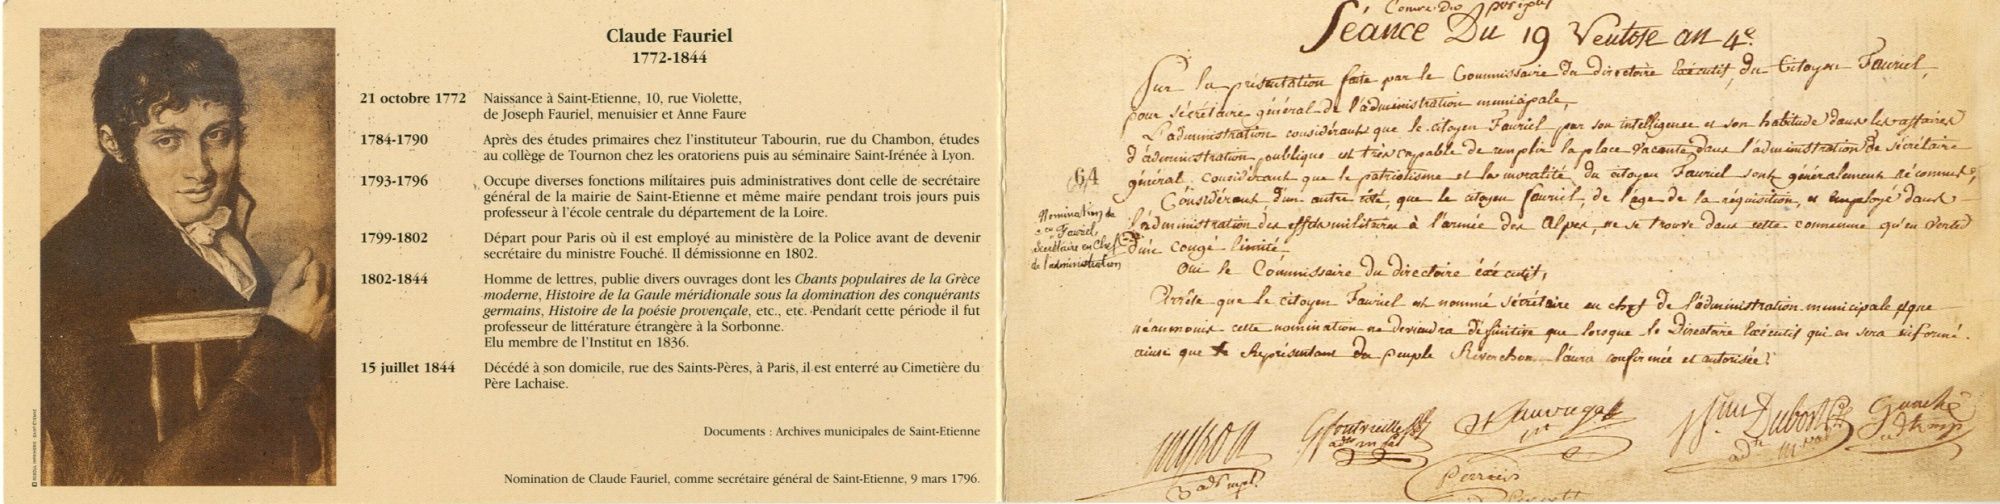 Claude Fauriel
1772-1844
21 octobre 1772 Naissance à Saint-Etienne, 10, rue Violette,
de Joseph Fauriel, menuisier et Anne Faure
1784-1790 Après des études primaires chez l'instituteur Tabourin, rue du Chambon, études
au collège de Tournon chez les oratoriens puis au séminaire Saint-Irénée à Lyon.
1793-1796 Occupe diverses fonctions militaires puis administratives dont celle de secrétaire
général de la mairie de Saint-Etienne et même maire pendant trois jours puis
professeur à l'école centrale du département de la Loire.
1799-1802 Départ pour Paris où il est employé au ministère de la Police avant de devenir
secrétaire du ministre Fouché. Il démissionne en 1802.
1802-1844 Homme de lettres, publie divers ouvrages dont les Chants populaires de la Grèce
moderne, Histoire de la Gaule méridionale sous la domination des conquérants
germains, Histoire de la poésie provençale, etc., etc. Pendant cette période il fut
professeur de littérature étrangère à la Sorbonne.
Elu membre de l'Institut en 1836.
15 juillet 1844 Décédé à son domicile, rue des Saints-Pères, à Paris, il est enterré au Cimetière du
Père Lachaise.
Documents : Archives municipales de Saint-Etienne
Nomination de Claude Fauriel, comme secrétaire général de Saint-Etienne, 9 mars 1796.
Séance Du 19 Ventose an 4e.
Sur la présentation faite par le Commissaire du directoire Exécutif, du Citoyen Fauriel,
pour sécrétaire général de l'administration municipale,
L'administration considérant que le citoyen Fauriel par son intelligence et son habitude dans les affaires
d'administration publique est très capable de remplir la place vacante dans l'administration de sécrétaire
général. Considérant que le patriotisme et la moralité du citoyen Fauriel sont généralement réconnus,
Considérant, d'un autre côté, que le citoyen fauriel, de l'age de la réquisition, et employé dans
l'administration des effets militaires à l'armée des Alpes, ne se trouve dans cette commune qu'en vertu
d'un congé limité.
Oui le Commissaire du directoire éxécutif,
Arrête que le citoyen Fauriel est nommé sécrétaire en chef de l'administration municipale, que
néaumoins cette nomination ne deviendra définitive que lorsque le Directoire Exécutif qui en sera informé.
ainsi que le Représentant du peuple Reverchon l'aura confirmée et autorisée.
64
Nomination de
Fauriel,
Secrétaire en Chef
de l'administration